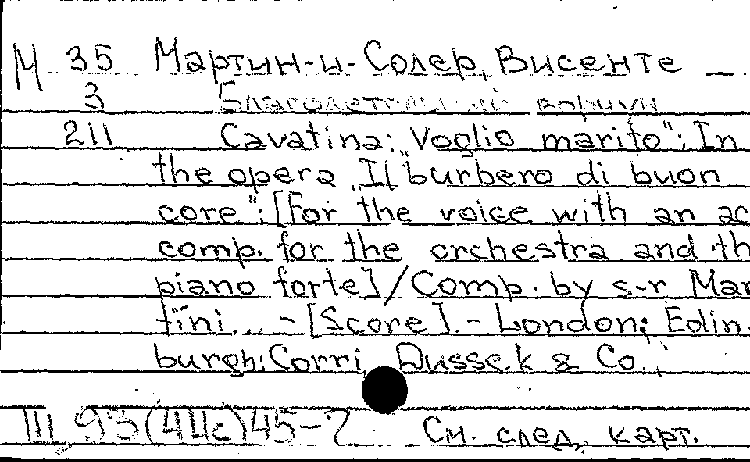 М 35 Мартин-и-Солер, Висенте
3 Благодетельный ворчун
211 Cavatina: „Voglio marito": In
the opera „Il burbero di buon
core": [For the voice with an ac
comp. for the orchestra and th
piano forte] / Comp. by s-r Mar
tini... - [Score]. - London; Edin.
burgh: Corri, Dussek & Co.,
III 93(44c)45-2 См. след. карт.